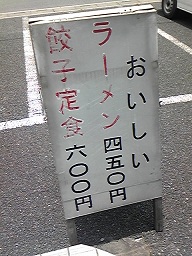 おいしい
ラーメン四五〇円
餃子定食六〇〇円